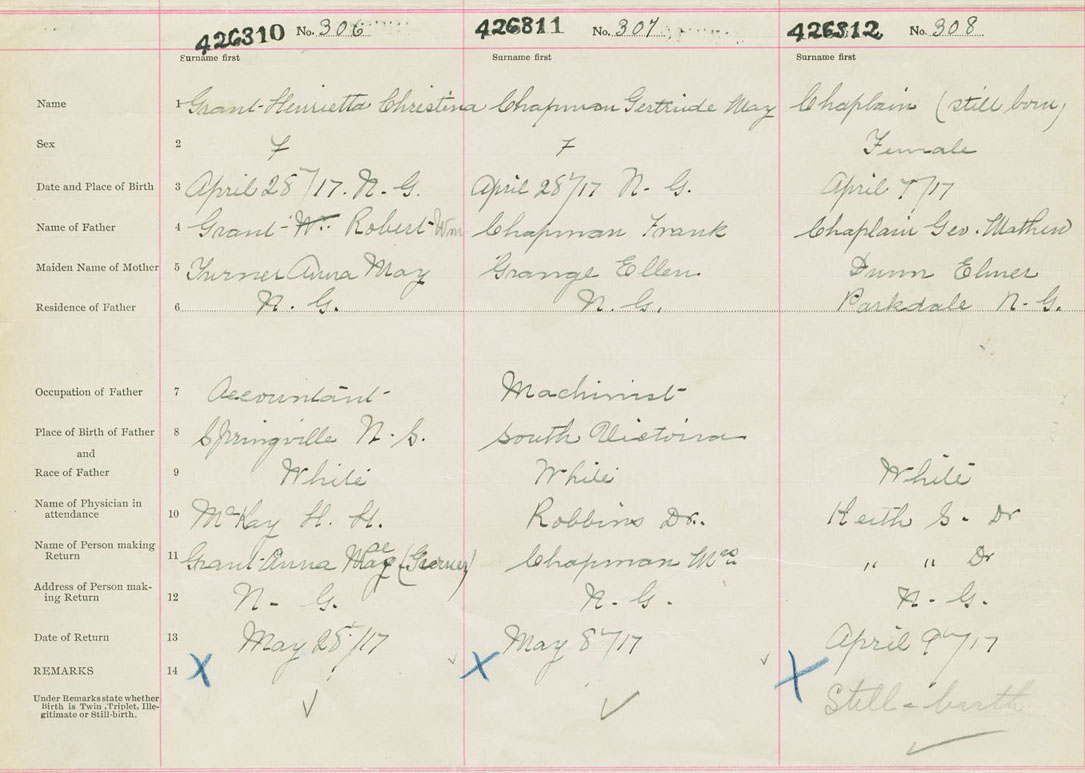 426310 No. 306 426311 No. 307 426312 No. 308
Surname first Surname first Surname first
Name 1 Grant Henrietta Christina Chapman Gertrude May Chaplain (still born)
Sex 2 F F Female
Date and Place of Birth 3 April 28"/17. N. G. April 28"/17 N. G. April 7/17
Name of Father 4 Grant Wm. Robert Wm Chapman Frank Chaplain Geo. Mathew
Maiden Name of Mother 5 Turner Anna May Grange Ellen Dunn
Residence of Father 6 N. G. N. G. Parkdale N. G.
Occupation of Father 7 Accountant Machinist
Place of Birth of Father 8 Springville N. S. South Victoria
and
Race of Father 9 White White White
Name of Physician in
attendance 10 McKay H. H. Robbins Dr. Keith S. Dr
Name of Person making
Return 11 Grant Anna Mae Chapman Mrs " " Dr
Address of Person mak-
ing Return 12 N. G. N. G. N. G.
Date of Return 13 May 28"/17 May 8"/17 April 9"/17
REMARKS 14 X X X
Under Remarks state whether
Birth is Twin, Triplet, Ille-
gitimate or Still-birth.
Still-birth